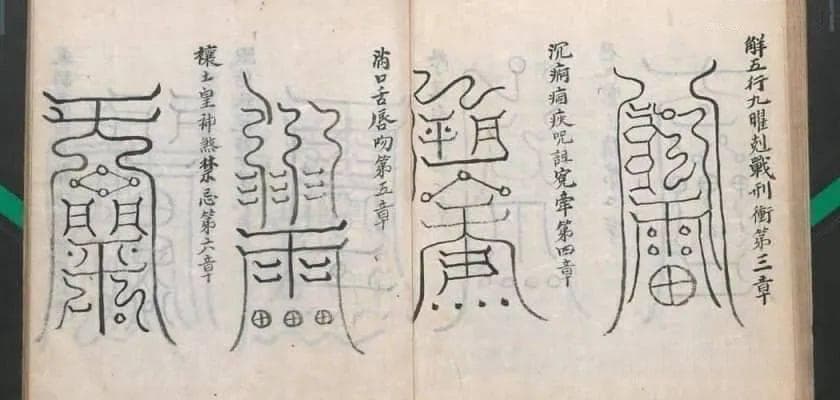 解五行九曜剋戰刑衝第三章
沉痾痼疾咒詛冤牽第四章
消口舌唇吻第五章
禳土皇神煞禁忌第六章